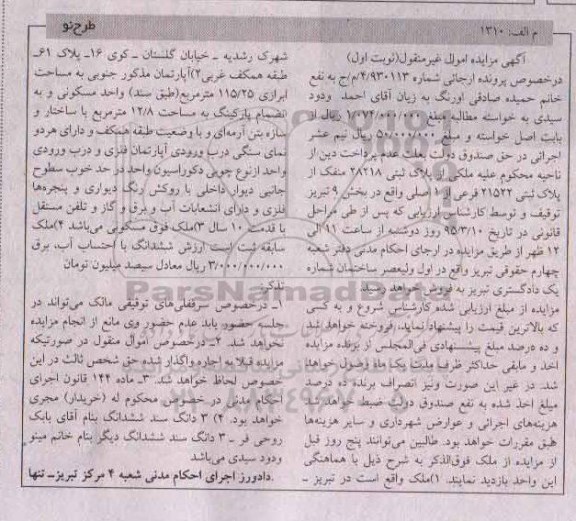 م الف: ۱۳۱۰
طرح‌نو
آگهی مزایده اموال غیرمنقول(نوبت اول)
درخصوص پرونده اجرائی شماره ۴/۹۳۰۱۱۳/م/ج به نفع
خانم حمیده صادقی اورنگ به زیان آقای احمد ودود
سیدی به خواسته مطالبه مبلغ ۱/۰۷۲/۰۰۰/۰۰۰ ریال از
بابت اصل خواسته و مبلغ ۵۰/۰۰۰/۰۰۰ ریال نیم عشر
اجرائی در حق صندوق دولت بعلت عدم پرداخت دین از
ناحیه محکوم علیه ملکی از پلاک ثبتی ۲۸۲۱۸ منفک از
پلاک ثبتی ۲۱۵۲۲ فرعی از ۱ اصلی واقع در بخش ۹ تبریز
توقیف و توسط کارشناس ارزیابی که پس از طی مراحل
قانونی در تاریخ ۹۵/۳/۱۰ روز دوشنبه از ساعت ۱۱ الی
۱۲ ظهر از طریق مزایده در اجرای احکام مدنی دفتر شعبه
چهارم حقوقی تبریز واقع در اول ولیعصر ساختمان شماره
یک دادگستری تبریز به فروش خواهد رسید.
مزایده از مبلغ ارزیابی شده کارشناس شروع و به کسی
که بالاترین قیمت را پیشنهاد نماید، فروخته خواهد شد
و ده درصد مبلغ پیشنهادی فی‌المجلس از برنده مزایده
اخذ و مابقی حداکثر ظرف مدت یک ماه وصول خواهد
شد. در غیر این صورت ونیز انصراف برنده ده درصد
مبلغ اخذ شده به نفع صندوق دولت ضبط خواهد شد
هزینه‌های اجرائی و عوارض شهرداری و سایر هزینه‌ها
طبق مقررات خواهد بود. طالبین می‌توانند پنج روز قبل
از مزایده از ملک فوق‌الذکر به شرح ذیل با هماهنگی
این واحد بازدید نمایند. ۱)ملک واقع است در تبریز ـ
شهرک رشدیه ـ خیابان گلستان ـ کوی ۱۶ـ پلاک ۶۱ـ
طبقه همکف غربی۲)آپارتمان مذکور جنوبی به مساحت
ابرازی ۱۱۵/۲۵ مترمربع(طبق سند) واحد مسکونی و به
انضمام پارکینگ به مساحت ۱۲/۸ مترمربع با ساختار و
سازه بتن آرمه‌ای و با وضعیت طبقه همکف و دارای هردو
نمای سنگی درب ورودی آپارتمان فلزی و درب ورودی
واحد ازنوع چوبی دکوراسیون واحد در حد خوب سطوح
جانبی دیوار داخلی با روکش رنگ دیواری و پنجره‌ها
فلزی و دارای انشعابات آب و برق و گاز و تلفن مستقل
با قدمت ۱۰ سال ۳)ملک فوق مسکونی می‌باشد ۴)ملک
سابقه ثبت است ارزش ششدانگ با احتساب آب، برق
۳/۰۰۰/۰۰۰/۰۰۰ ریال معادل سیصد میلیون تومان
تذکر:
۱ـ درخصوص سرقفلی‌های توقیفی مالک می‌تواند در
جلسه حضور یابد عدم حضور وی مانع از انجام مزایده
نخواهد شد. ۲ـ درخصوص اموال منقول در صورتیکه
مزایده قبلا به اجاره واگذار شده حق شخص ثالث در این
خصوص لحاظ خواهد شد. ۳ـ ماده ۱۴۴ قانون اجرای
احکام مدنی در خصوص محکوم له (خریدار) مجری
خواهد بود. ۴) ۳ دانگ سند ششدانگ بنام آقای بابک
روحی فر ـ ۳ دانگ سند ششدانگ دیگر بنام خانم مینو
ودود سیدی می‌باشد
.دادورز اجرای احکام مدنی شعبه ۴ مرکز تبریزـ تنها
ParsNamadData